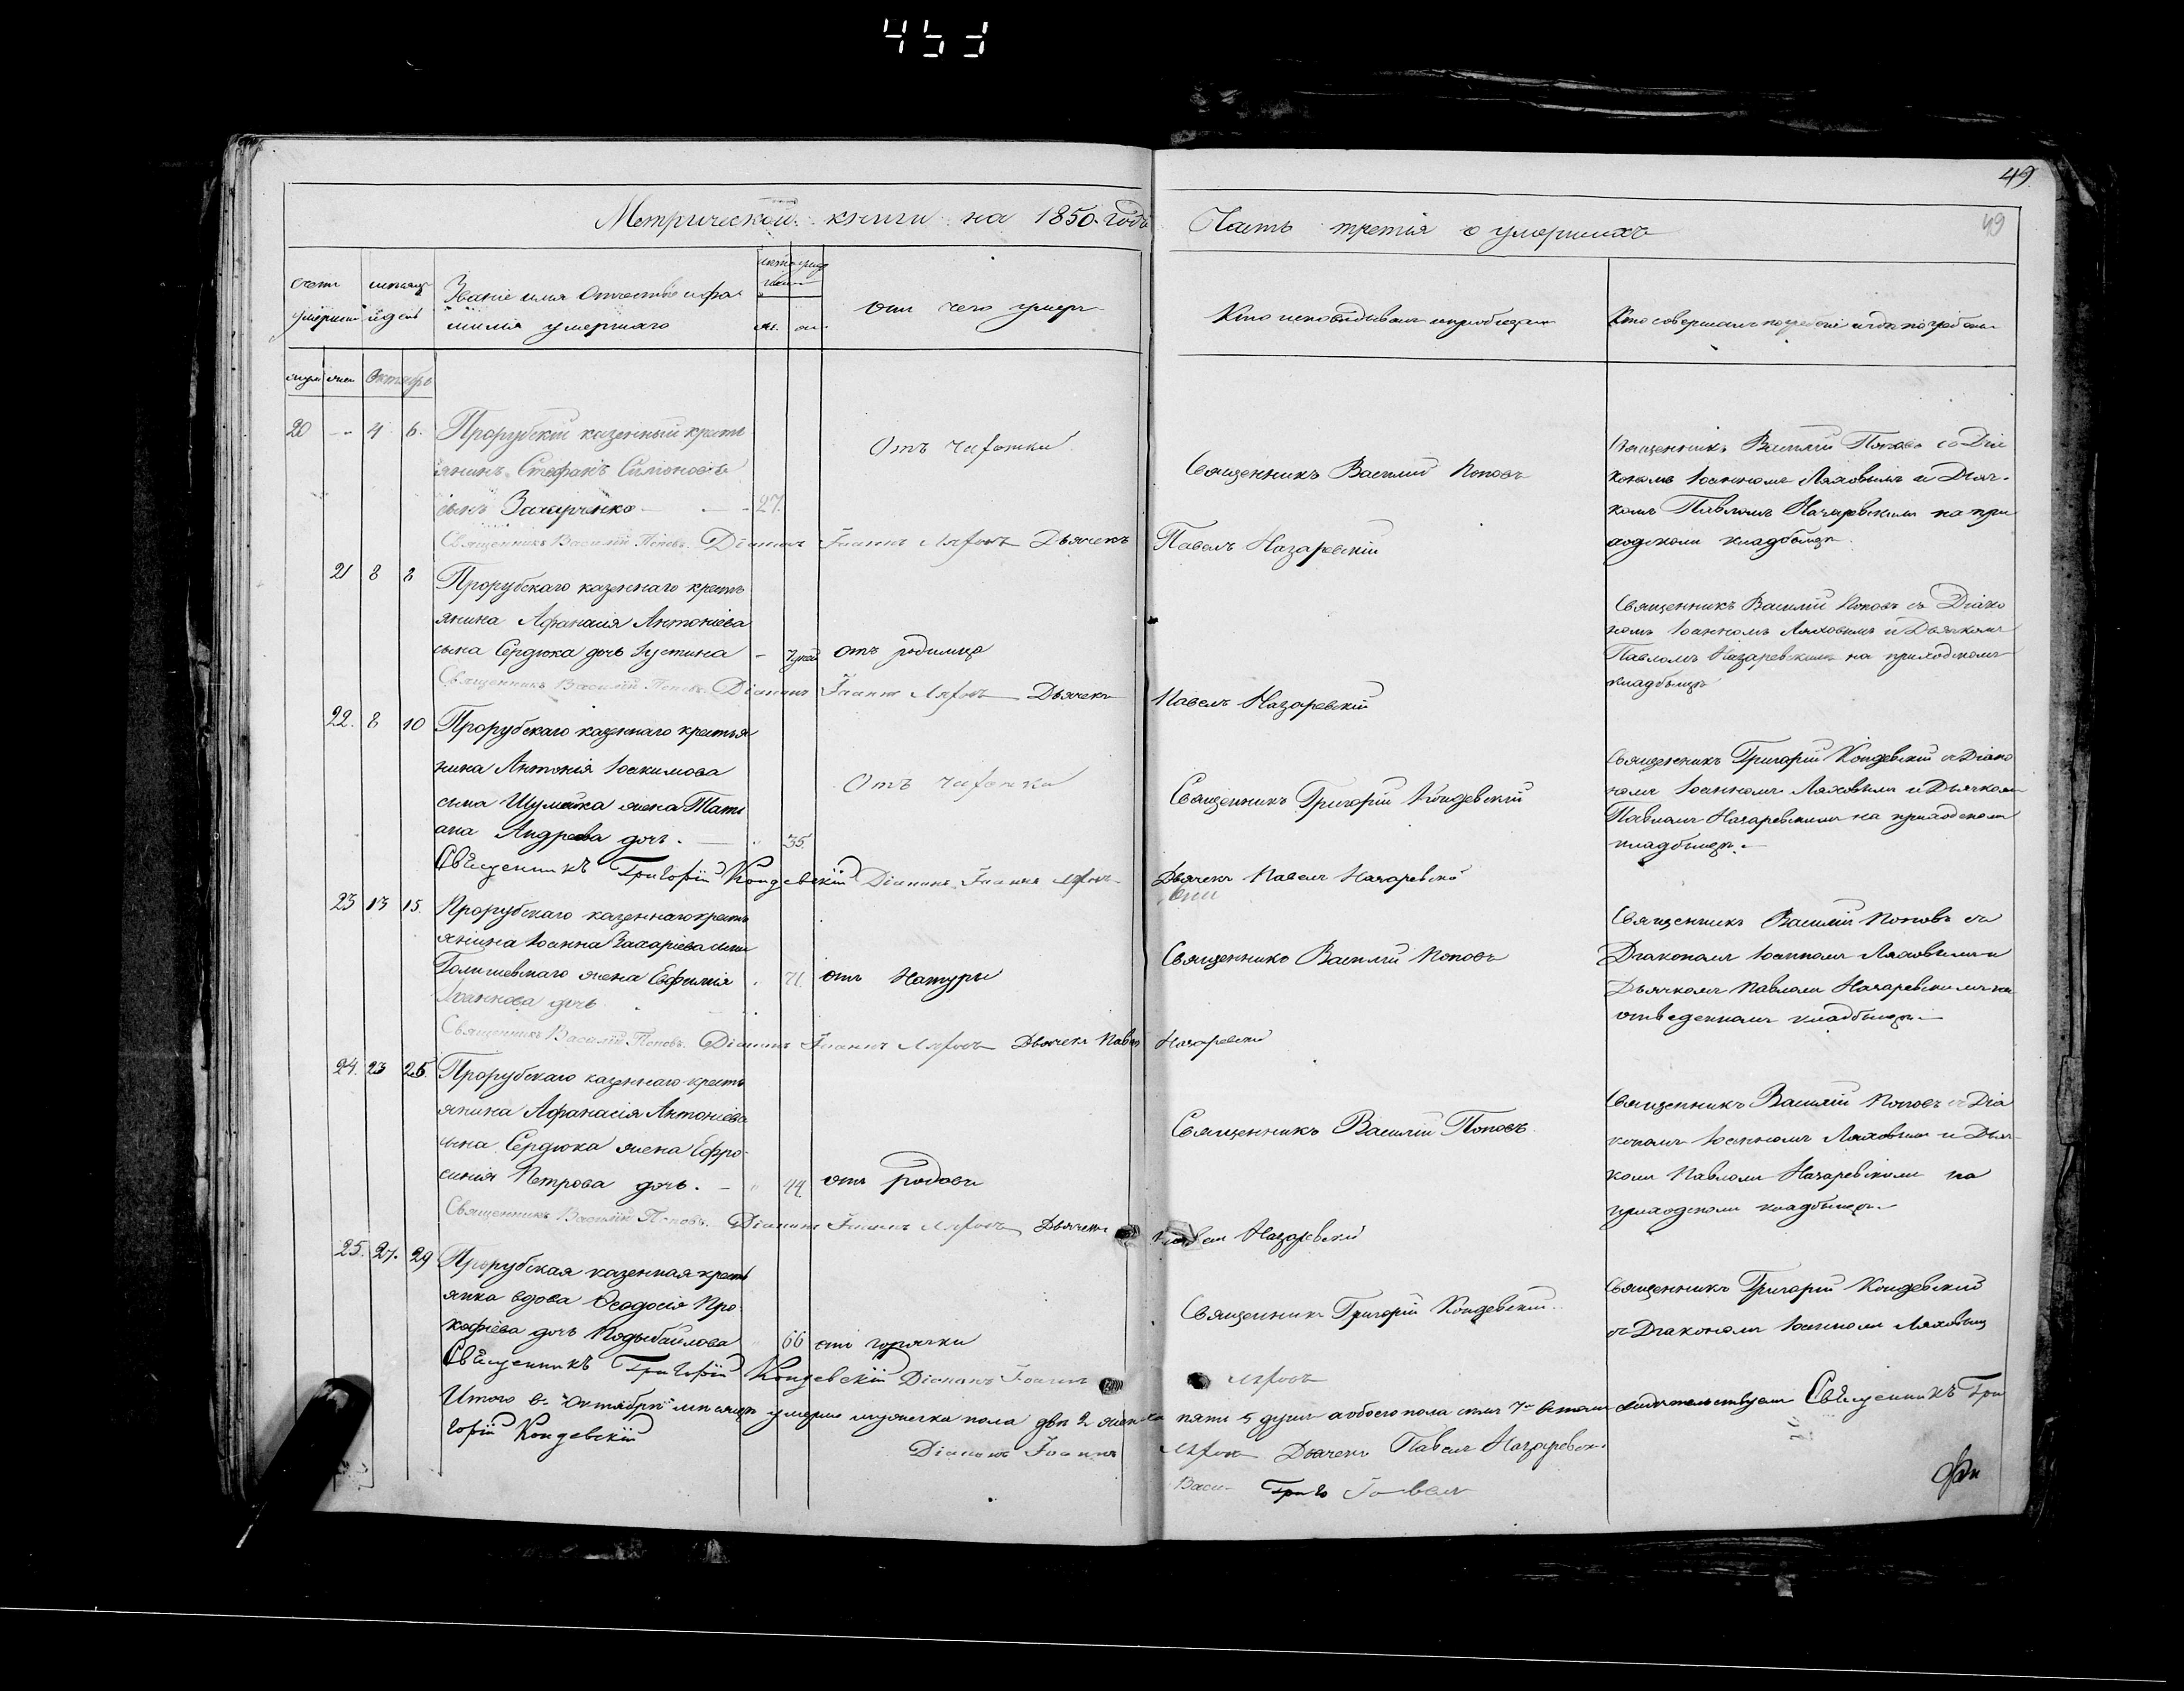 453
49
49
Метрической книги на 1850. Годъ Часть третія о умершихъ
Званіе имя Отчество и фа
милія умершаго
отъ чего умеръ
Кто исповѣдывалъ и приобщалъ
Кто совершалъ погребеніе и гдѣ погребены
Октябрь
20 4 6. Прорубскій казенный кресть
янинъ Стефанъ Симіоновъ
сынъ Захарченко 27.
Отъ чахотки
Священникъ Василій Поповъ
Священникъ Василій Поповъ со Діа
кономъ Іоанномъ Ляховымъ и Дьяч-
комъ Павломъ Назаревскимъ на при
ходскомъ кладбищѣ.
Священникъ Василій Поповъ. Діаконъ Іоаннъ Ляховъ Дьячекъ Павелъ Назаревскій
21 8 8 Прорубскаго казеннаго кресть
янина Афанасія Антоніева
сына Сердюка дочь Іустина
отъ родимца
Священникъ Василій Поповъ съ Діако
номъ Іоанномъ Ляховымъ и Дьячкомъ
Павломъ Назаревскимъ на приходскомъ
кладбищѣ
Священникъ Василій Поповъ. Діаконъ Іоаннъ Ляховъ Дьячекъ Павелъ Назаревскій
22. 8 10 Прорубскаго казеннаго крестья
нина Антонія Іоакимова
сына Шумейка жена Тати
ана Андреева дочь. 35.
Отъ чахотки
Священникъ Григорій Кондевскій
Священникъ Григорій Кондевскій съ Діако
номъ Іоанномъ Ляховымъ и Дьячкомъ
Павломъ Назаревскимъ на приходскомъ
кладбищѣ.
Свѣщенникъ Григорій Кондевскій Діаконъ Іоаннъ Ляховъ Дьячекъ Павелъ Назаревскій
23 13 15. Прорубскаго казеннаго кресть
янина Іоанна Захаріева сына
Голишевскаго жена Евфимія 71.
Іоаннова дочь
отъ Натуры
Священникъ Василій Поповъ
Священникъ Василій Поповъ съ
Діакономъ Іоанномъ Ляховымъ и
Дьячкомъ Павломъ Назаревскимъ на
отведенномъ кладбищѣ.
Священникъ Василій Поповъ. Діаконъ Іоаннъ Ляховъ Дьячекъ Павелъ Назаревскій
24. 23 25. Прорубскаго казеннаго кресть
янина Афанасія Антоніева
сына Сердюка жена Ефро
синія Петрова дочь. 44.
отъ родовъ
Священникъ Василій Поповъ.
Священникъ Василій Поповъ съ Діа
кономъ Іоанномъ Ляховымъ и Дьяч
комъ Павломъ Назаревскимъ на
приходскомъ кладбищѣ.
Священникъ Василій Поповъ. Діаконъ Іоаннъ Ляховъ Дьячекъ Павелъ Назаревскій
25. 27. 29 Прорубская казенная кресть
янка вдова Ѳеодосія Про
кофіева дочь 66
отъ горячки
Священникъ Григорій Кондевскій.
Священникъ Григорій Кондевскій
съ Діакономъ Іоанномъ Ляховымъ
Свѣщенникъ Григорій Кондевскій Діаконъ Іоаннъ Ляховъ
Итого въ Октябрѣ мѣсяцѣ умерло мужеска пола двѣ 2 женска пять 5 душъ а обоего пола семь 7 въ томъ свидѣтельствуемъ Свѣщенникъ Гри
горій Кондевскій
Діаконъ Іоаннъ Ляховъ Дьячекъ Павелъ Назаревскій